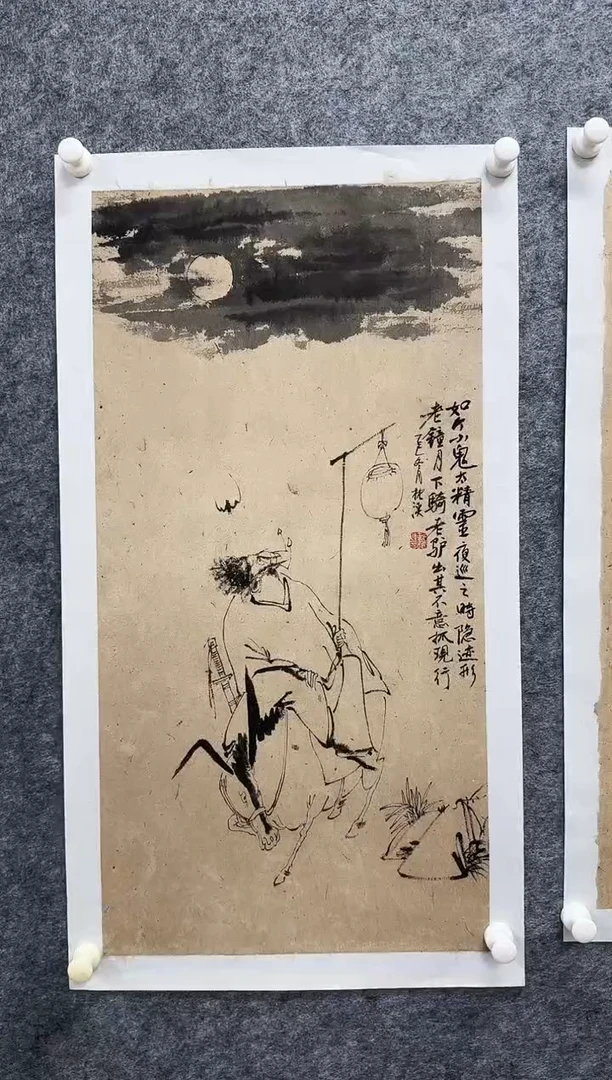 如今小鬼太精靈夜巡之時隐迹形
老鐘月下騎老驴出其不意抓現行
乙巳冬月